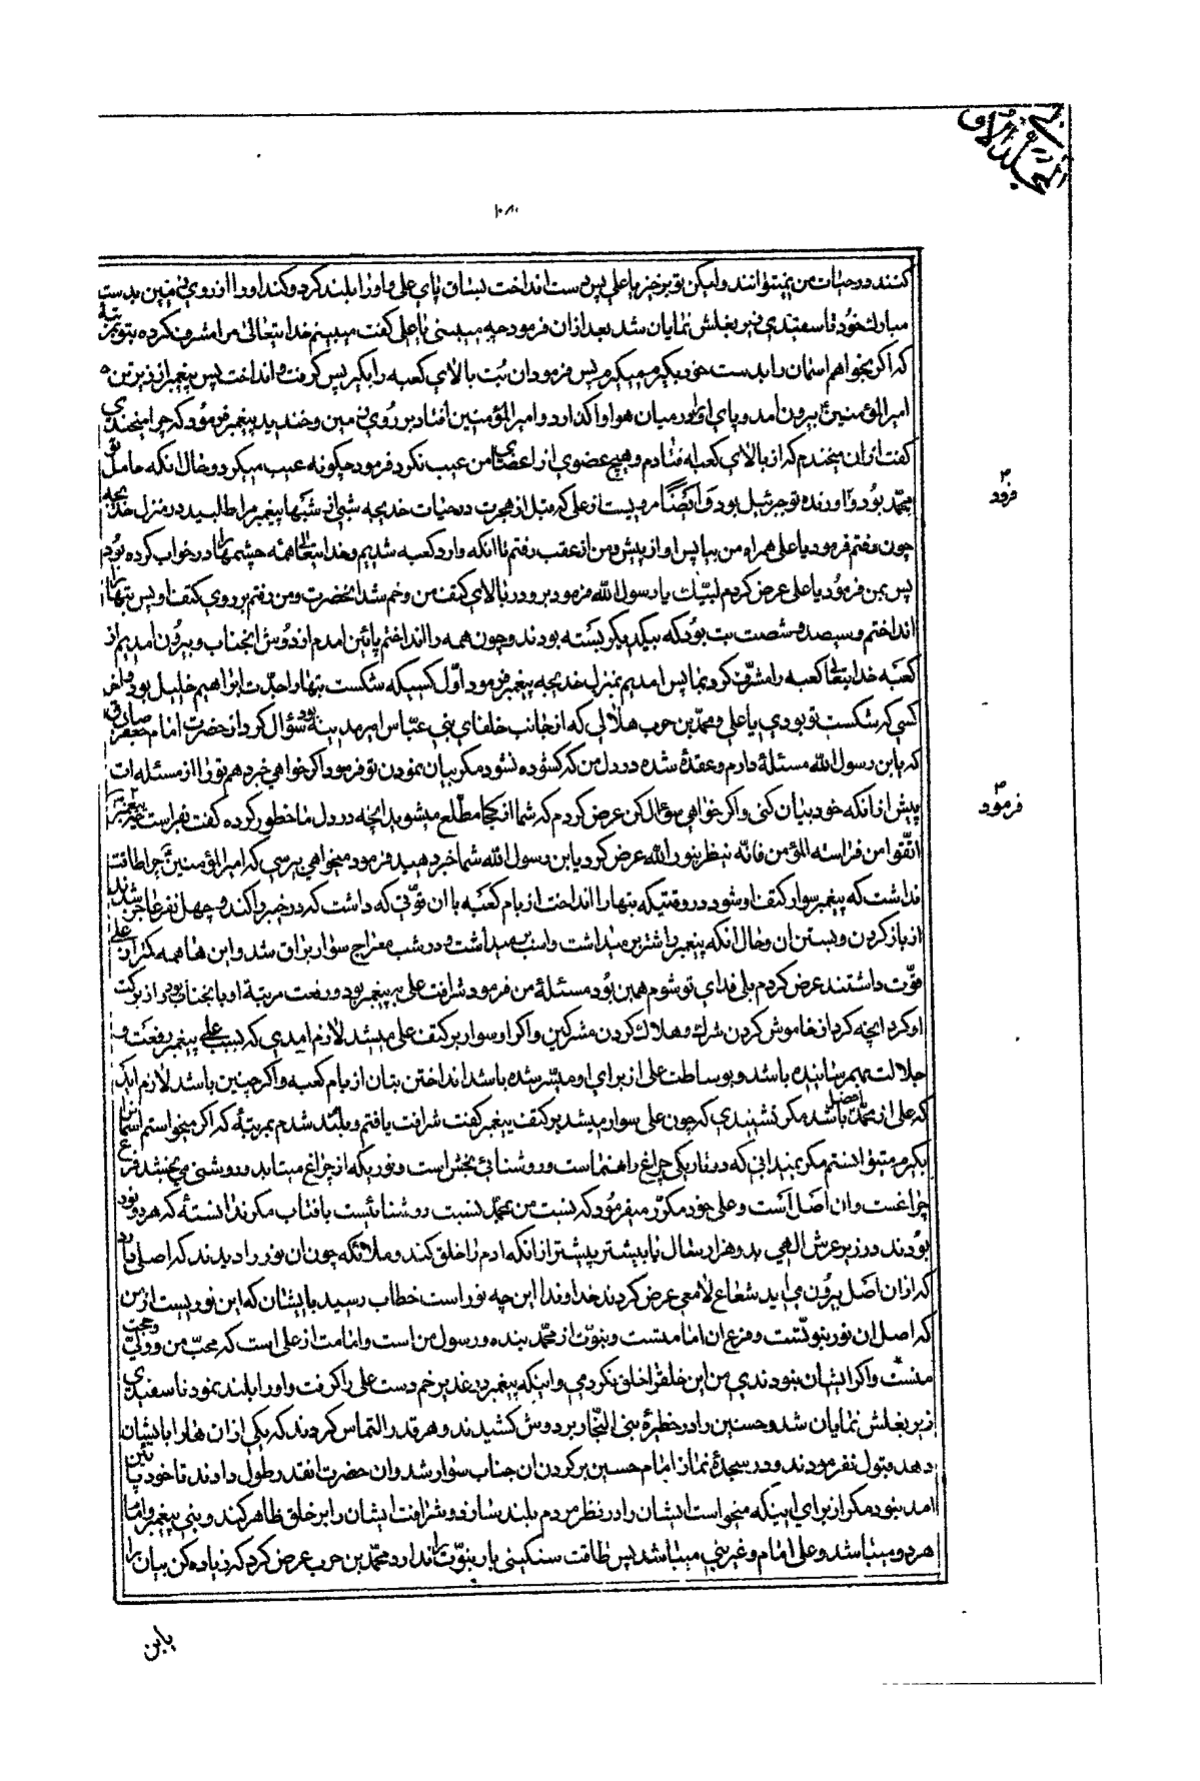 المجلد الاول
۱۰۸۰
کنند در حیات من نمیتوانند ولیکن تو برخیز یا علی پس دست انداخت بساق پای علی و او را بلند کرد و کند او را از روی زمین بدست
مبارک خود تا سفیدی زیر بغلش نمایان شد بعد از ان فرمود چه میبینی یا علی گفت میبینم خدایتعالی مرا مشرف کرده بتو بمرتبهٔ
که اگر بخواهم اسمان را بدست خود بگیرم میگیرم پس فرمود ان بت بالای کعبه را بگیر پس گرفت و انداخت پس پیغمبر از زیر تن
امیرالمؤمنین بیرون امد و پای او را در میان هوا واگذارد و امیرالمؤمنین افتاد بر روی زمین و خندید پیغمبر فرمود که چرا میخندی
گفت از ان میخندم که از بالای کعبه افتادم و هیچ عضوی از اعضای من عیب نکرد فرمود چگونه عیب میکرد و حال انکه حامل تو
محمد بود و اورنده تو جبرئیل بود و ایضًا مرویست از علی که قبل از هجرت در حیات خدیجه شبی از شبها پیغمبر مرا طلبید در منزل خدیجه
چون رفتم فرمود یا علی همراه من بیا پس او از پیش و من از عقب رفتم تا انکه وارد کعبه شدیم و خدایتعالی همه چشمها را در خواب کرده بود
پس بمن فرمود یا علی عرض کردم لبیک یا رسول الله فرمود برو در بالای کتف من و خم شد انحضرت و من رفتم بر روی کتف او پس بتها را
انداختم و سیصد و شصت بت بود که بیکدیگر بسته بودند و چون همه را انداختم پائین امدم از دوش انجناب و بیرون امدیم از
کعبه خدایتعالی کعبه را مشرف کرد بما پس امدیم بمنزل خدیجه پیغمبر فرمود اول کسیکه شکست بتها را جدت ابراهیم خلیل بود و اخر
کسی که شکست تو بودی یا علی و محمد بن حرب هلالی که از جانب خلفای بنی عباس امیر مدینه بود سؤال کرد از حضرت امام جعفر صادق
که یا بن رسول الله مسئلهٔ دارم و عقدهٔ شده در دل من که گشوده نشود مگر بیان نمودن تو فرمود اگر خواهی خبر دهم تو را از مسئله ات
پیش از انکه خود بیان کنی و اگر خواهی سؤال کن عرض کردم که شما از کجا مطلع میشوید انچه در دل ما خطور کرده گفت بفراست پیغمبر فرمود
اتقوا من فراسة المؤمن فانه ینظر بنور الله عرض کرد یا بن رسول الله شما خبر دهید فرمود میخواهی بپرسی که امیرالمؤمنین چرا طاقت
نداشت که پیغمبر سوار کتف او شود در وقتیکه بتها را انداخت از بام کعبه با ان قوتی که داشت که در خیبر را کند و چهل نفر عاجز شدند
از باز کردن و بستن ان و حال انکه پیغمبر را شتر بر میداشت و اسب بر میداشت و در شب معراج سوار براق شد و این ها همه کمتر از علی
قوت داشتند عرض کردم بلی فدای تو شوم همین بود مسئلهٔ من فرمود شرافت علی به پیغمبر بود و رفعت مرتبهٔ او بانجناب بود و از برکت
او کرد انچه کرد از خاموش کردن شرک و هلاک کردن مشرکین و اگر او سوار بر کتف علی میشد لازم امدی که بسبب علی پیغمبر رفعت و
جلالت بهم رسانیده باشد و بوساطت علی از برای او میسر شده باشد انداختن بتان از بام کعبه و اگر چنین باشد لازم اید
که علی از محمد افضل باشد مگر نشنیدی که چون علی سوار میشد بر کتف پیغمبر گفت شرافت یافتم و بلند شدم بمرتبهٔ که اگر میخواستم اسمان را
بگیرم میتوانستم مگر نمیدانی که در تاریکی چراغ راهنما است و روشنائی بخش است و نوریکه از چراغ میتابد و روشنی می بخشد فرع
چراغست و ان اصل است و علی خود مکرر میفرمود که نسبت من بمحمد نسبت روشنائیست بافتاب مگر ندانستهٔ که هر دو نور
بودند در زیر عرش الهی بدو هزار سال یا بیشتر پیشتر از انکه ادم را خلق کند و ملائکه چون ان نور را دیدند که اصلی دارد
که از ان اصل بیرون می اید شعاع لامعی عرض کردند خداوندا این چه نور است خطاب رسید بایشان که این نوریست از من
که اصل ان نور نبوتست و فرع ان امامتست و نبوت از محمد بنده و رسول من است و امامت از علی است که محب من و ولی و حجت
منست و اگر ایشان نبودندی من این خلق را خلق نکردمی و اینکه پیغمبر در غدیر خم دست علی را گرفت و او را بلند نمود تا سفیدی
زیر بغلش نمایان شد و حسنین را در حظیرهٔ بنی النجار بر دوش کشیدند و هر قدر التماس کردند که یکی از ان ها را بایشان
دهد قبول نفرمودند و در سجدهٔ نماز امام حسین بر گردن ان جناب سوار شد و ان حضرت انقدر طول دادند تا خود پائین
امد نبود مگر از برای اینکه میخواست ایشان را در نظر مردم بلند سازد و شرافت ایشان را بر خلق ظاهر کند و نبی پیغمبر و امام
هر دو میباشد و علی امام و غیر نبی میباشد پس طاقت سنگینی بار نبوت را ندارد محمد بن حرب عرض کرد که زیاده کن بیان را
فرمود
فرمود
یا بن